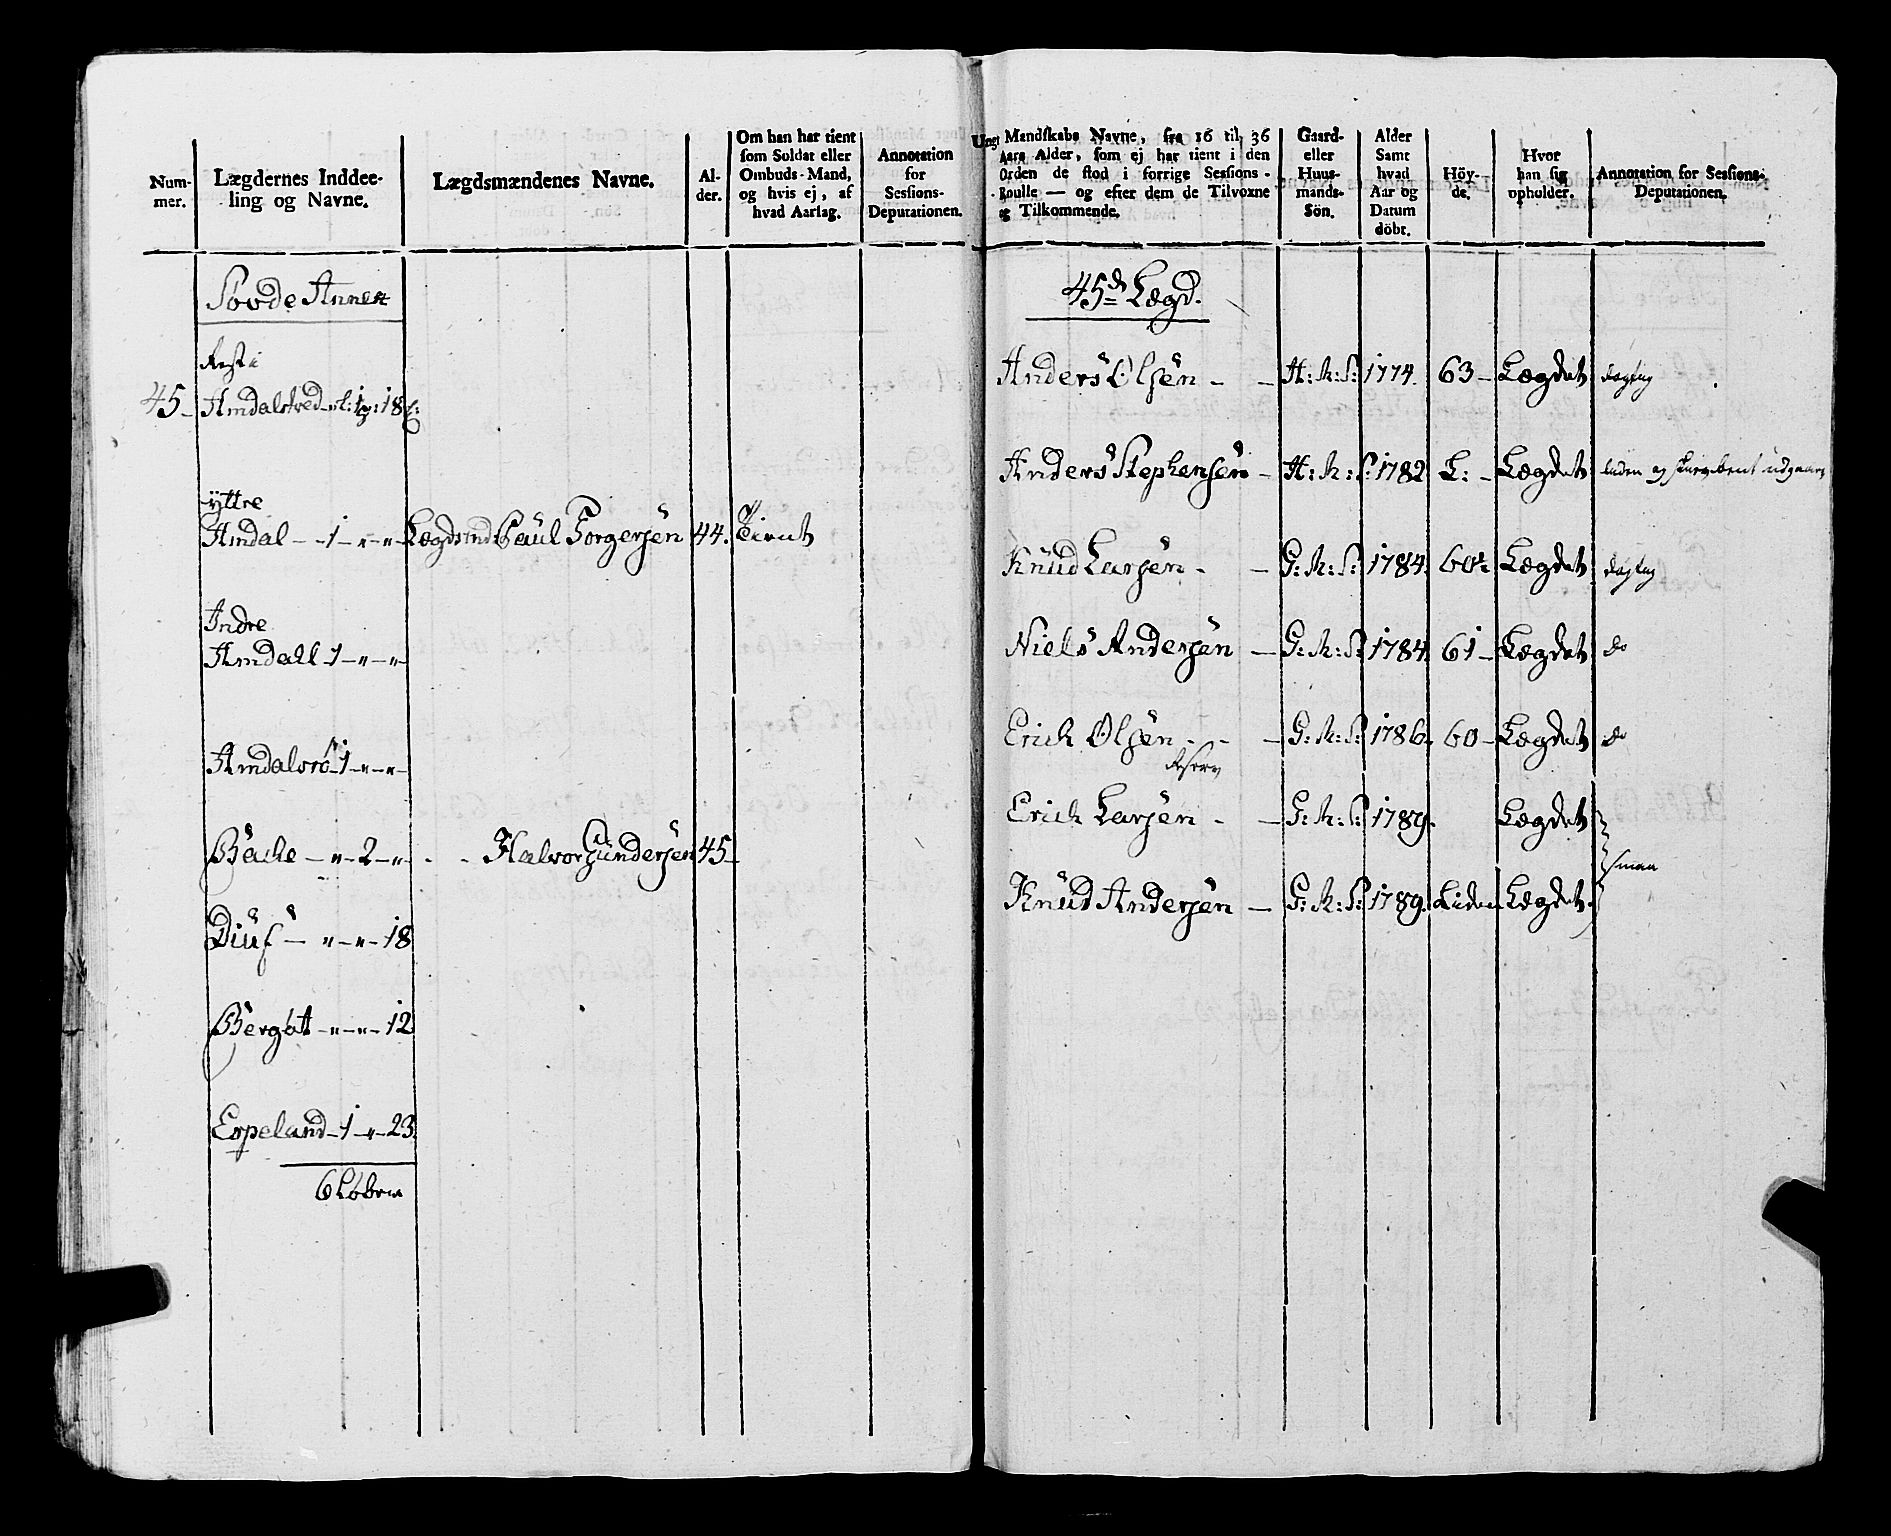 Num-
mer.
Lægdernes Inddee-
ling og Navne.
Lægdsmændenes Navne.
Al-
der.
Om han har tient
som Soldat eller
Ombuds-Mand,
og hvis ej, af
hvad Aarsag.
Annotation
for
Sessions-
Deputationen.
Sovde Annex
Rest i
45 – Amdalstred – 1 : 18
ÿttre
Amdal – – 1 – „ – „ – Lægdsmd: Paul Torgersen 44. Tient
Indre
Amdall 1 – „ – „
Amdalsrö 1 – „ – „
Bache – „ – 2 – „ – - - Halvor Gundersen 45 –
Diuf – „ – „ – 18
Bergöt – „ – „ – 12
Espeland – 1 – „ – 23
6 Löber
Ungt Mandskabs Navne, fra 16 til 36
Aars Alder, som ej har tient i den
Orden de stod i forrige Sessions-
Roulle — og efter dem de Tilvoxne
og Tilkommende.
Gaard-
eller
Huus-
mands-
Sön.
Alder
Samt
hvad
Aar og
Datum
döbt.
Höy-
de.
Hvor
han sig
opholder.
Annotation for Sessions-
Deputationen.
45de Lægd.
Anders Olsen – – H: M: S: 1774. 63 – Lægdet dogtug
Anders Stephensen – H: M: S: 1782 L: – Lægdet liden og udgaar
Knüd Larsen - – G: M: S: 1784. 60 Lægdet dogtug
Niels Andersen – G: M: S: 1784. 61 – Lægdet do
Erich Olsen - - – G: M: S: 1786. 60 – Lægdet do
Erich Larsen - – G: M: S: 1789. Lægdet
smaa
Knüd Andersen – G: M: S: 1789. Liden Lægdet